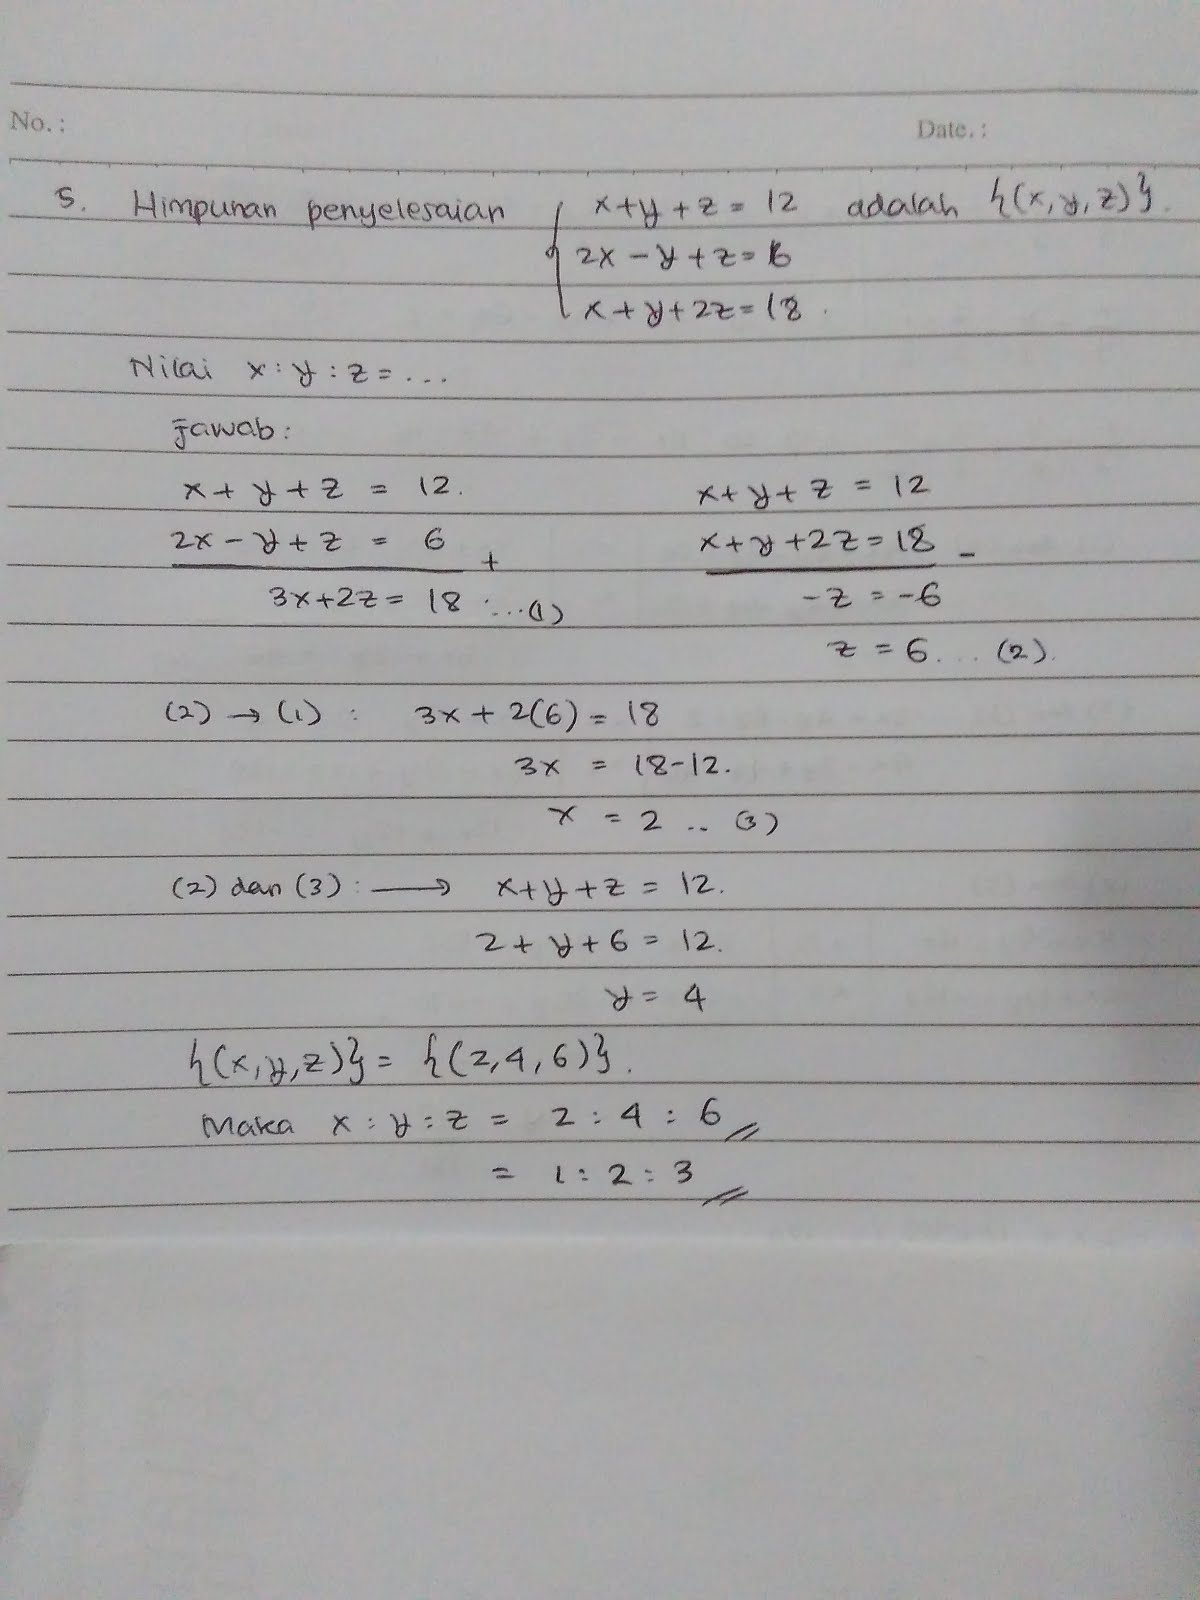 No.: Date.:
5. Himpunan penyelesaian { x+y+z = 12 adalah {(x,y,z)}.
2x-y+z=6
x+y+2z=18.
Nilai x:y:z=...
Jawab:
x+y+z = 12. x+y+z = 12
2x-y+z = 6 + x+y+2z=18 -
3x+2z= 18 ....(1) -z = -6
z = 6... (2).
(2) → (1) : 3x+2(6) = 18
3x = 18-12.
x = 2 .. (3)
(2) dan (3): ⟶ x+y+z = 12.
2+y+6 = 12.
y = 4
{(x,y,z)} = {(2,4,6)}.
Maka x:y:z = 2:4:6 //
= 1:2:3 //